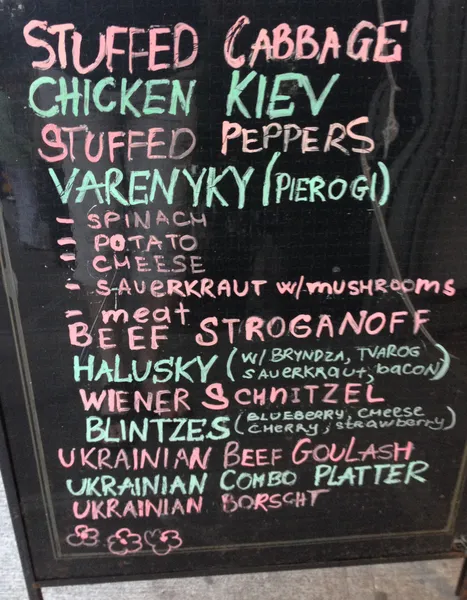 STUFFED CABBAGE
CHICKEN KIEV
STUFFED PEPPERS
VARENYKY (PIEROGI)
- SPINACH
- POTATO
- CHEESE
- SAUERKRAUT W/MUSHROOMS
- meat
BEEF STROGANOFF
HALUSKY (W/ BRYNDZA, TVAROG
SAUERKRAUT, BACON)
WIENER SCHNITZEL
BLINTZES (BLUEBERRY, CHEESE
CHERRY, STRAWBERRY)
UKRAINIAN BEEF GOULASH
UKRAINIAN COMBO PLATTER
UKRAINIAN BORSCHT